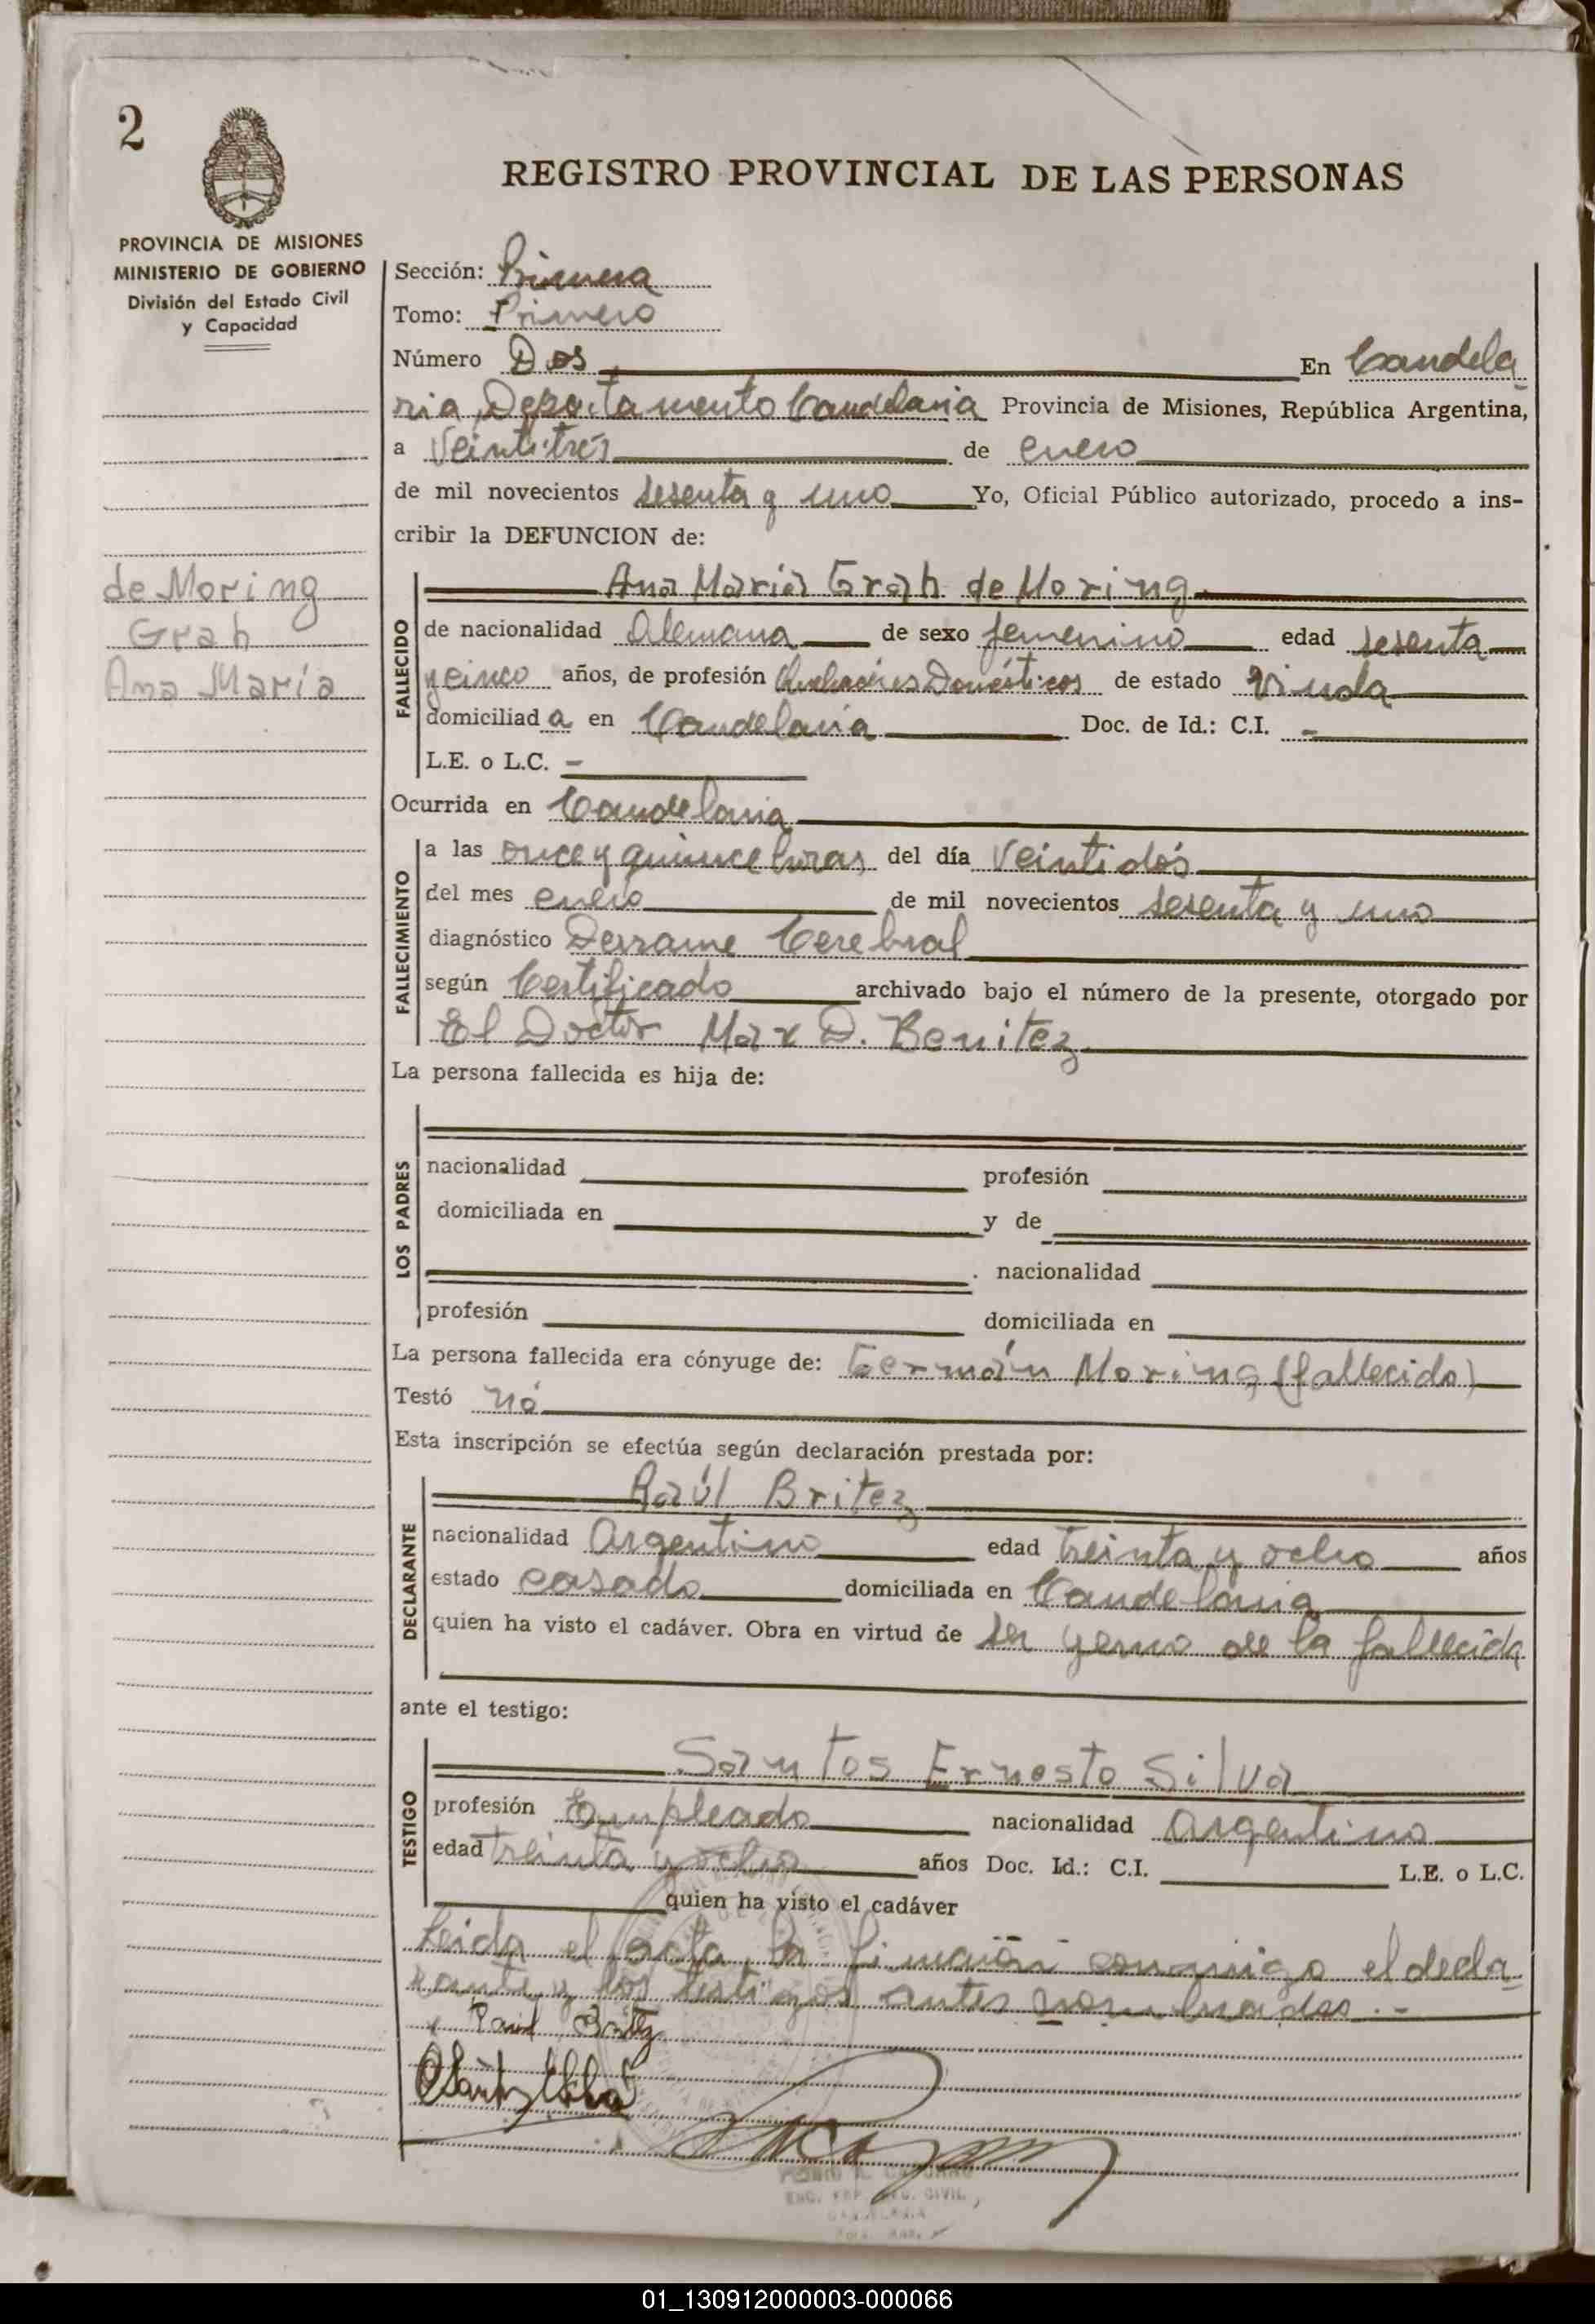 2
REGISTRO PROVINCIAL DE LAS PERSONAS
PROVINCIA DE MISIONES
MINISTERIO DE GOBIERNO
División del Estado Civil
y Capacidad
Sección: Primera
Tomo: Primero
Número Dos En Candela
ria, Departamento Candelaria Provincia de Misiones, República Argentina,
a Veintitrés de enero
de mil novecientos sesenta y uno Yo, Oficial Público autorizado, procedo a ins-
cribir la DEFUNCION de:
de Moring
Grah
Ana María
FALLECIDO
Ana María Grah de Moring
de nacionalidad Alemana de sexo femenino edad sesenta
y cinco años, de profesión Quehaceres Domésticos de estado Viuda
domiciliad a en Candelaria Doc. de Id.: C.I. -
L.E. o L.C. -
Ocurrida en Candelaria
FALLECIMIENTO
a las once y quince horas del día Veintidós
del mes enero de mil novecientos sesenta y uno
diagnóstico Derrame Cerebral
según Certificado archivado bajo el número de la presente, otorgado por
El Doctor Max D. Benitez
La persona fallecida es hija de:
LOS PADRES
nacionalidad profesión
domiciliada en y de
. nacionalidad
profesión domiciliada en
La persona fallecida era cónyuge de: Germán Moring (fallecido)
Testó nó
Esta inscripción se efectúa según declaración prestada por:
DECLARANTE
Raúl Britez
nacionalidad Argentino edad treinta y ocho años
estado casado domiciliada en Candelaria
quien ha visto el cadáver. Obra en virtud de ser yerno de la fallecida
ante el testigo:
TESTIGO
Santos Ernesto Silva
profesión Empleado nacionalidad Argentino
edad treinta y ocho años Doc. Id.: C.I. L.E. o L.C.
quien ha visto el cadáver
Leida el acta, la firmarón conmigo el decla-
rante y los testigos antes nombrados.-
Raul Britez
ENC. REG. CIVIL
01_130912000003-000066